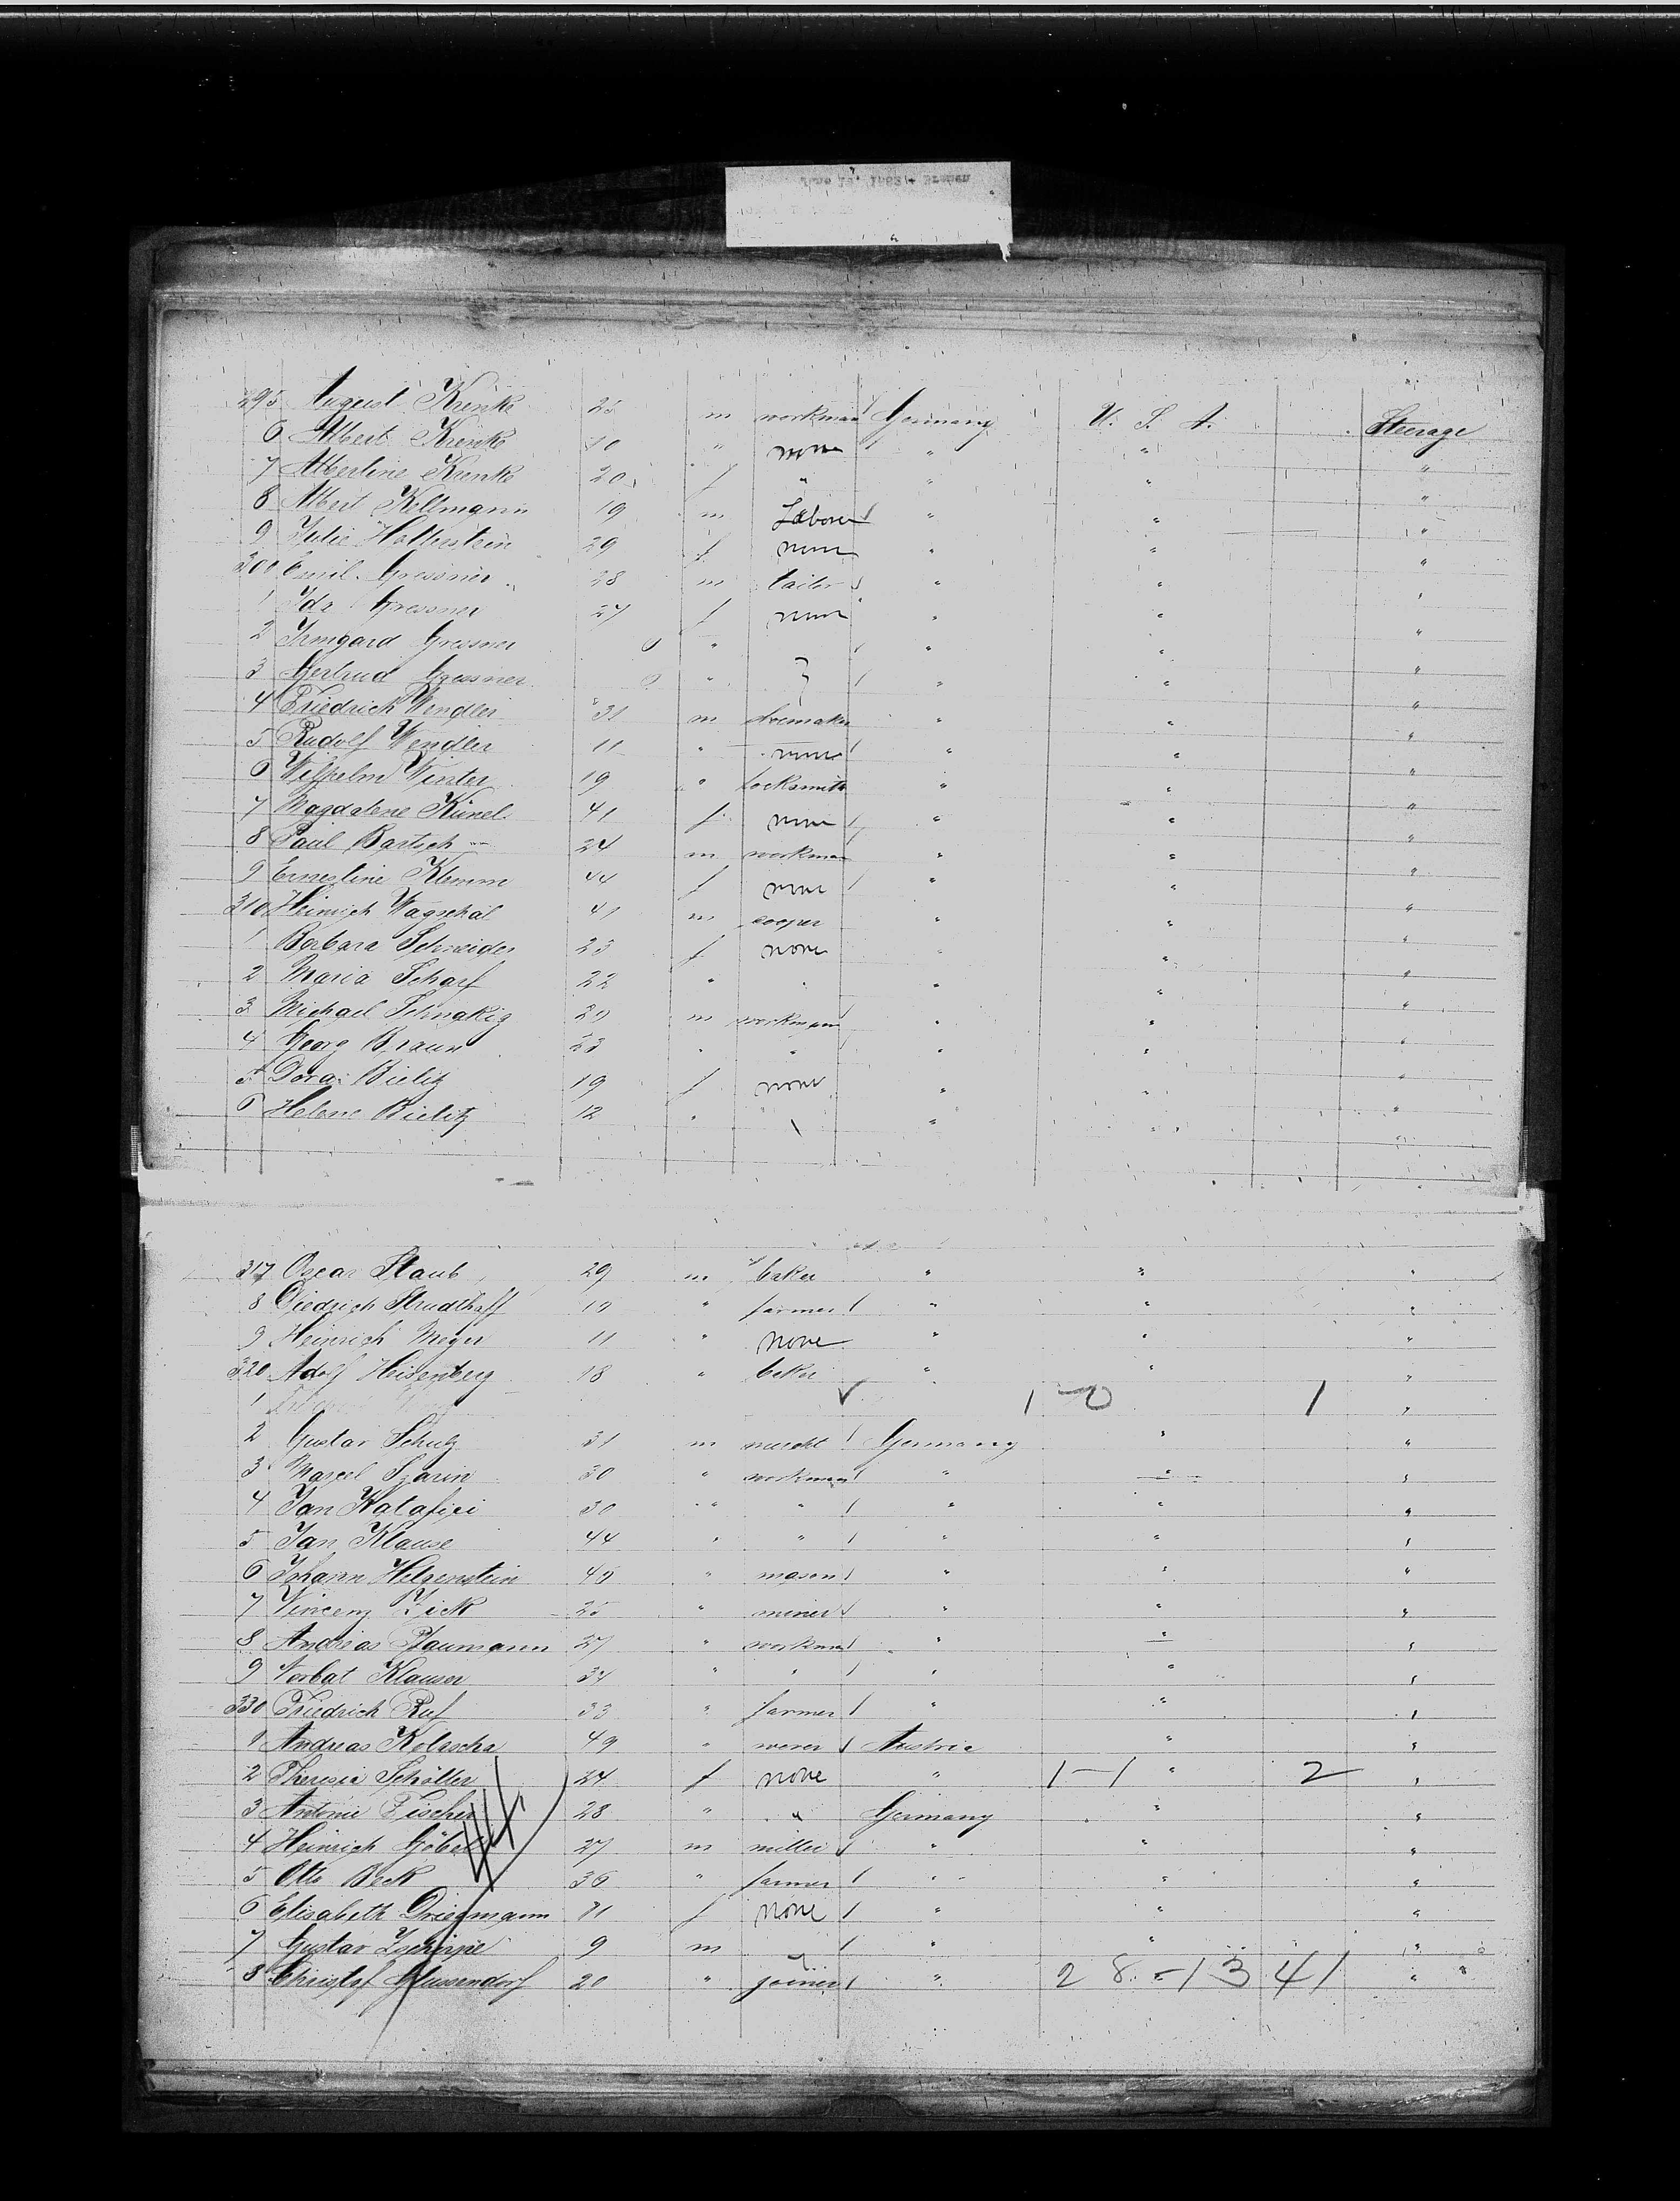 295 August Krenke 25 m workman Germany U. S. A. Steerage
6 Albert Krenke 10 " none " " "
7 Albertine Krenke 20 f " " " "
8 Albert Kellmann 19 m Laborer " " "
9 Julie Hallerstein 29 f none " " "
300 Emil Gressner 28 m tailor " " "
1 Ida Gressner 27 f none " " "
2 Irmgard Gressner 0 " " " "
3 Gertrud Gressner 0 " " " "
4 Friedrich Wendler 31 m shoemaker " " "
5 Rudolf Wendler 11 " none " " "
6 Wilhelm Winter 19 " locksmith " " "
7 Magdalene Künel 41 f none " " "
8 Paul Bartsch 24 m workman " " "
9 Ernestine Klemm 44 f none " " "
310 Heinrich Wagschal 41 m cooper " " "
1 Barbara Schneider 23 f none " " "
2 Maria Scharf 22 " " " " "
3 Michael 29 m workman " " "
4 Georg Braun 23 " " " " "
5 Dora Bielitz 19 f none " " "
6 Helene Bielitz 12 " " " " "
317 Oscar Staub 29 m baker " " "
8 Diedrich Strudthoff 19 " farmer " " "
9 Heinrich Meyer 11 " none " " "
320 Adolf Heisenberg 18 " baker " " "
1 1-0 1 "
2 Gustav Schulz 31 m Germany " "
3 Marcel 30 " workman " " "
4 Jan 30 " " " " "
5 Jan Klause 44 " " " " "
6 Johann Helgenstein 46 " mason " " "
7 Vincenz Zick 25 " miner " " "
8 Andreas Pflaumann 27 " workman " " "
9 Klauser 34 " " " " "
330 Friedrich Ruf 33 " farmer " " "
1 Andreas Kolascha 49 " Austria " "
2 Theresia Schöller 24 f none " 1-1 " 2 "
3 Antonie Fischer 28 " " Germany " "
4 Heinrich Göbel 27 m miller " " "
5 Otto Beck 36 " farmer " " "
6 Elisabeth Driegmann 31 f none " " "
7 Gustav Zschirpe 9 m " " "
8 Christof Glussendorf 20 " joiner " 28-13 41 "